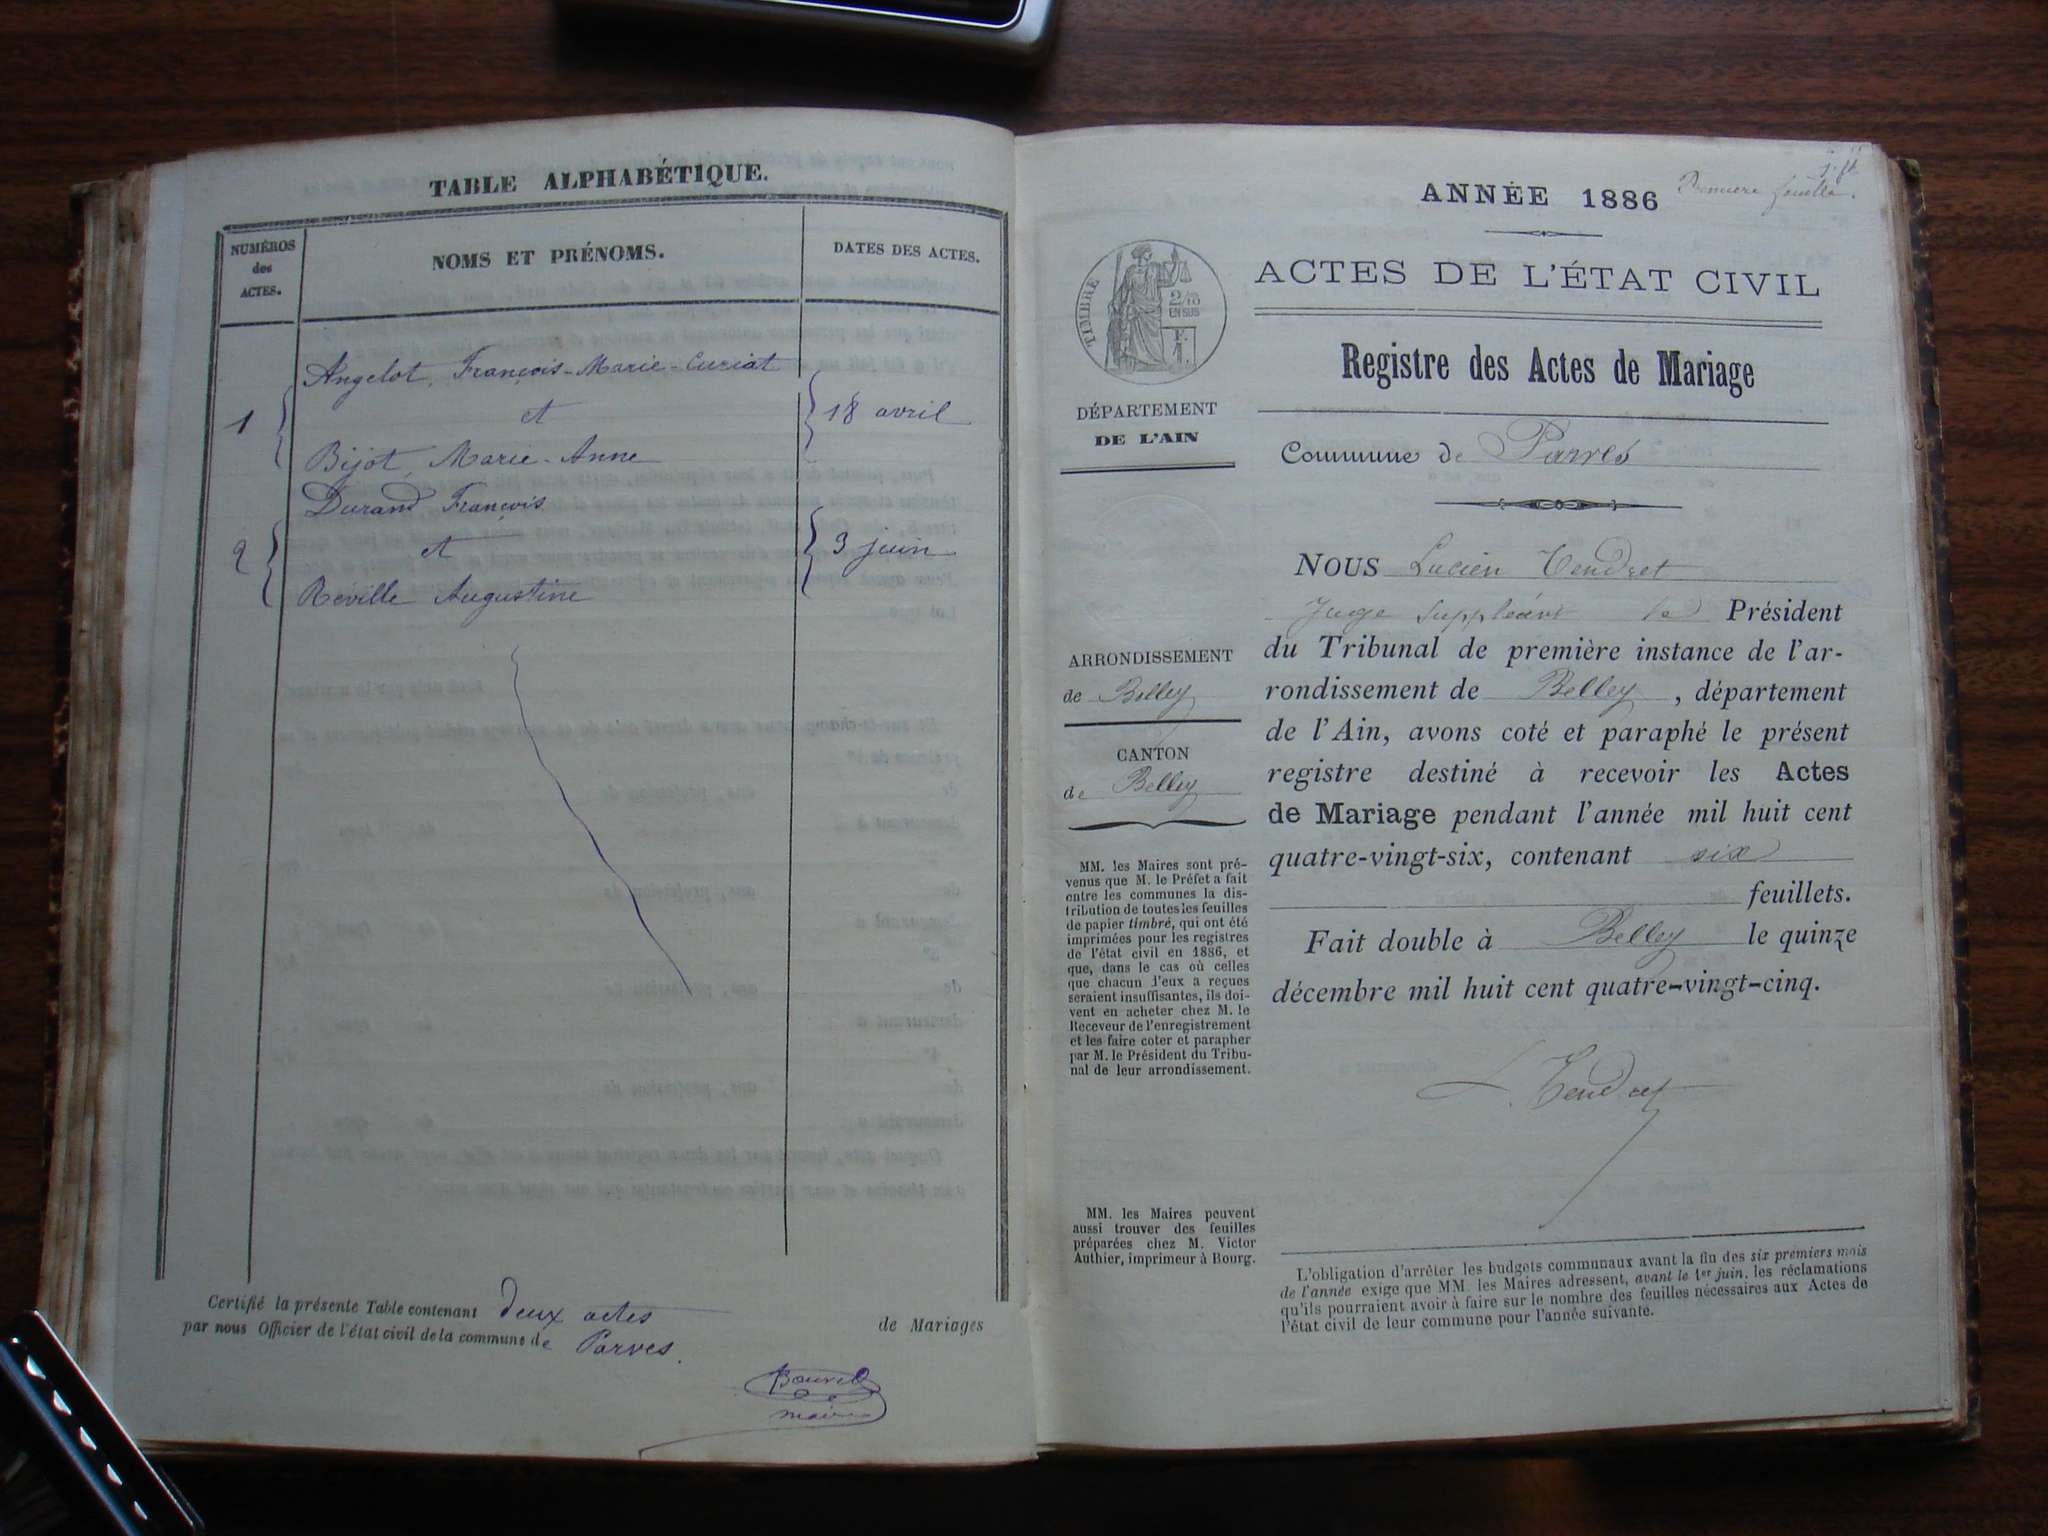 TABLE ALPHABÉTIQUE.
NUMÉROS
des
ACTES.
NOMS ET PRÉNOMS.
DATES DES ACTES.
Angelot, François-Marie-Curiat
1
et
18 avril
Bijot, Marie-Anne
Durand François
2
et
3 juin
Réville Augustine
Certifié la présente Table contenant deux actes de Mariages
par nous Officier de l'état civil de la commune de Parves.
maire
Première feuille.
ANNÉE 1886
ACTES DE L'ÉTAT CIVIL
TIMBRE
2/10
EN SUS
F.
1.
Registre des Actes de Mariage
DÉPARTEMENT
DE L'AIN
Commune de Parves
NOUS Lucien Tendret
Juge Suppléant le Président
du Tribunal de première instance de l'ar-
rondissement de Belley, département
de l'Ain, avons coté et paraphé le présent
registre destiné à recevoir les Actes
de Mariage pendant l'année mil huit cent
quatre-vingt-six, contenant six
feuillets.
Fait double à Belley le quinze
décembre mil huit cent quatre-vingt-cinq.
L. Tendret
ARRONDISSEMENT
de Belley
CANTON
de Belley
MM. les Maires sont pré-
venus que M. le Préfet a fait
entre les communes la dis-
tribution de toutes les feuilles
de papier timbré, qui ont été
imprimées pour les registres
de l'état civil en 1886, et
que, dans le cas où celles
que chacun d'eux a reçues
seraient insuffisantes, ils doi-
vent en acheter chez M. le
Receveur de l'enregistrement
et les faire coter et parapher
par M. le Président du Tribu-
nal de leur arrondissement.
MM. les Maires peuvent
aussi trouver des feuilles
préparées chez M. Victor
Authier, imprimeur à Bourg.
L'obligation d'arrêter les budgets communaux avant la fin des six premiers mois
de l'année exige que MM. les Maires adressent, avant le 1er juin, les réclamations
qu'ils pourraient avoir à faire sur le nombre des feuilles nécessaires aux Actes de
l'état civil de leur commune pour l'année suivante.